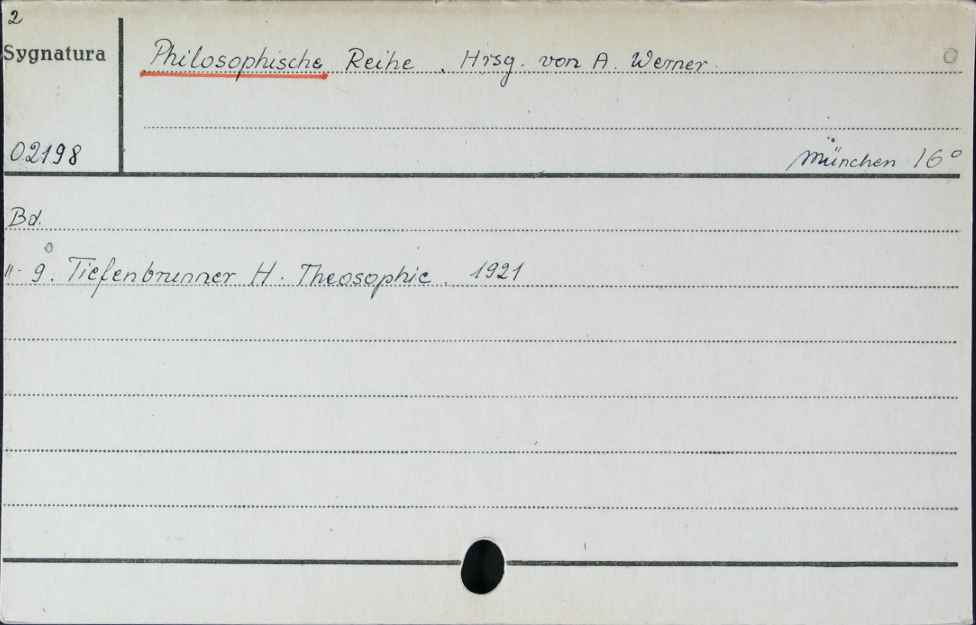 2
Sygnatura
Philosophische Reihe. Hrsg. von A. Werner.
02198
München 16°
Bd.
"- 9. Tiefenbrunner H. Theosophie. 1921